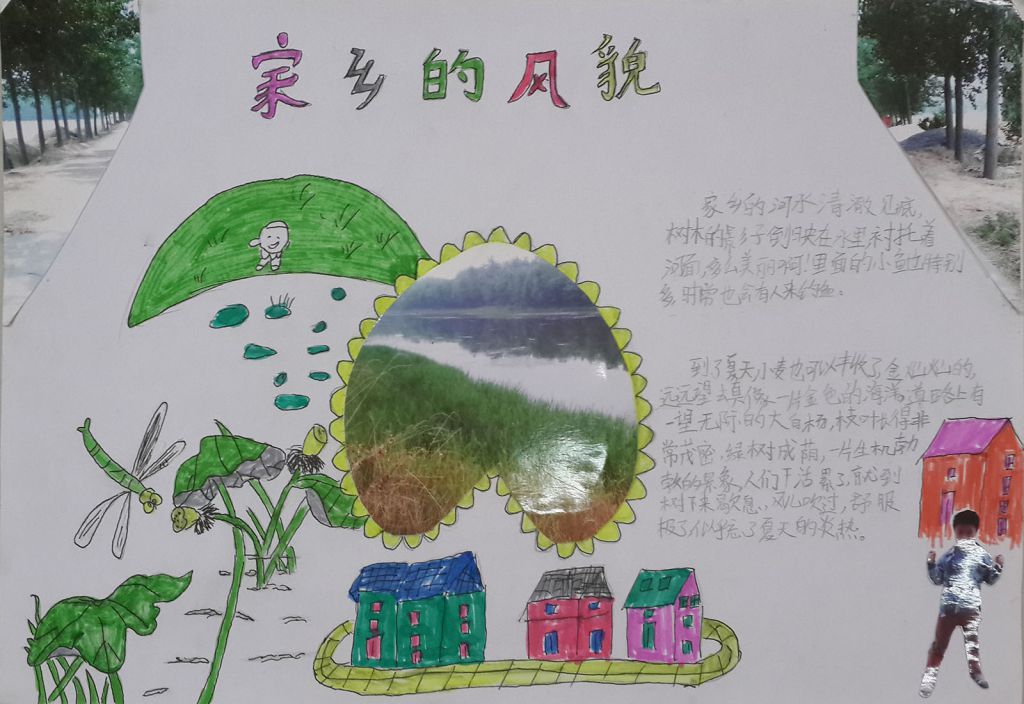 家乡的风貌
家乡的河水清澈见底,
树木的影子倒映在水里衬托着
河面,多么美丽啊!里面的小鱼也特别
多,时常也会有人来钓鱼。
到了夏天小麦也可以丰收了金灿灿的,
远远望去真像一片金色的海洋道路上有
一望无际的大白杨,枝叶长得非
常茂密,绿树成荫,一片生机勃
勃的景象,人们干活累了就到
树下来歇息,风儿吹过,舒服
极了似乎忘了夏天的炎热。